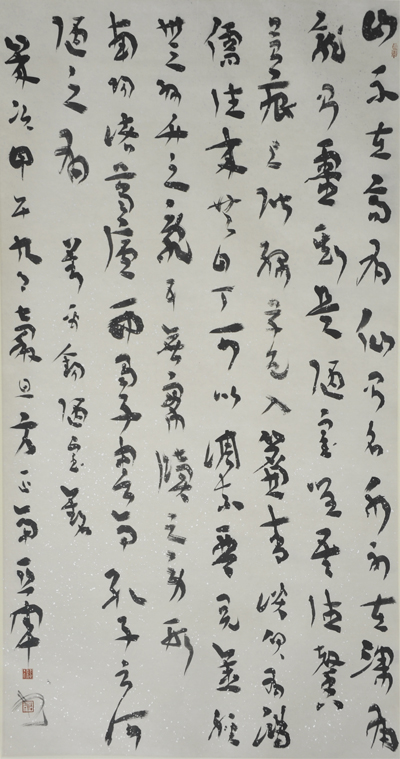 山不在高有仙則名水不在深有
龍則靈斯是陋室唯吾德馨
苔痕上階綠草色入簾青談笑有鴻
儒往來無白丁可以調素琴閱金經
無絲竹之亂耳無案牘之勞形
南陽諸葛廬西蜀子雲亭孔子云何
陋之有 劉禹錫陋室銘
歲次甲午九月